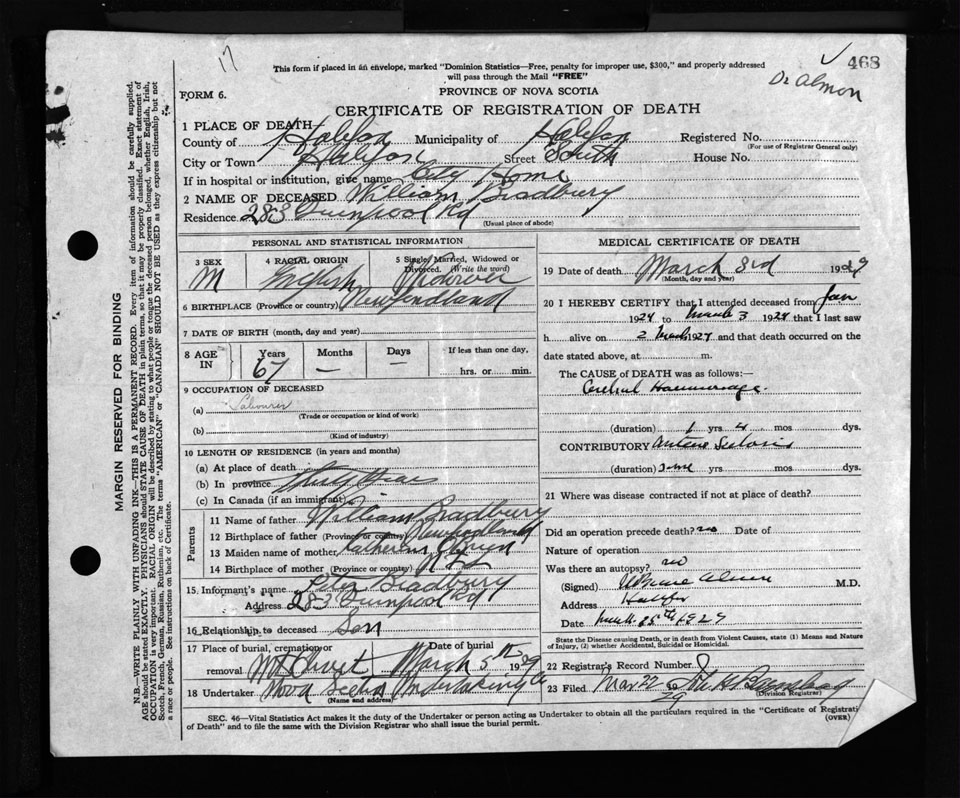 17
✓ 468
Dr Almon
This form if placed in an envelope, marked "Dominion Statistics—Free, penalty for improper use, $300," and properly addressed
will pass through the Mail "FREE"
FORM 6.
PROVINCE OF NOVA SCOTIA
CERTIFICATE OF REGISTRATION OF DEATH
1 PLACE OF DEATH—
County of Halifax Municipality of Halifax Registered No.
(For use of Registrar General only)
City or Town Halifax Street South House No.
If in hospital or institution, give name City Home
2 NAME OF DECEASED William Bradbury
Residence 283 Quinpool Rd
(Usual place of abode)
PERSONAL AND STATISTICAL INFORMATION
3 SEX 4 RACIAL ORIGIN 5 Single, Married, Widowed or
Divorced. (Write the word)
M English Widower
6 BIRTHPLACE (Province or country) Newfoundland
7 DATE OF BIRTH (month, day and year)
8 AGE IN Years Months Days If less than one day,
67 — — hrs. or min.
9 OCCUPATION OF DECEASED
(a) Labourer
(Trade or occupation or kind of work)
(b)
(Kind of industry)
10 LENGTH OF RESIDENCE (in years and months)
(a) At place of death
(b) In province
(c) In Canada (if an immigrant)
Parents
11 Name of father William Bradbury
12 Birthplace of father (Province or country) Newfoundland
13 Maiden name of mother Katherine
14 Birthplace of mother (Province or country)
15. Informant's name Bradbury
Address 283 Quinpool Rd
16 Relationship to deceased Son
17 Place of burial, cremation or removal Mt Olivet
Date of burial March 5th 1929
18 Undertaker Nova Scotia Undertaking Co
(Name and address)
MEDICAL CERTIFICATE OF DEATH
19 Date of death March 3rd 1929
(Month, day and year)
20 I HEREBY CERTIFY that I attended deceased from Jan
1929 to March 3 1929 that I last saw
h alive on 2 March 1929 and that death occurred on the
date stated above, at m.
The CAUSE of DEATH was as follows:—
Cerebral Haemorrhage.
(duration) 1 yrs 4 mos dys.
CONTRIBUTORY Arterio Sclerosis
(duration) Some yrs mos dys.
21 Where was disease contracted if not at place of death?
Did an operation precede death? no Date of
Nature of operation
Was there an autopsy? no
(Signed) Almon M.D.
Address Halifax
Date March 25th 1929
State the Disease causing Death, or in death from Violent Causes, state (1) Means and Nature
of Injury, (2) whether Accidental, Suicidal or Homicidal.
22 Registrar's Record Number
23 Filed Mar 22 29
(Division Registrar)
SEC. 46—Vital Statistics Act makes it the duty of the Undertaker or person acting as Undertaker to obtain all the particulars required in the "Certificate of Registrati
of Death" and to file the same with the Division Registrar who shall issue the burial permit.
(OVER)
MARGIN RESERVED FOR BINDING
N.B.—WRITE PLAINLY WITH UNFADING INK—THIS IS A PERMANENT RECORD. Every item of information should be carefully supplied.
AGE should be stated EXACTLY. PHYSICIANS should STATE CAUSE OF DEATH in plain terms, so that it may be properly classified. Exact statement of
OCCUPATION is very important. RACIAL ORIGIN will be described by stating to what people or tongue the deceased person belonged, whether English, Irish,
Scotch, French, German, Russian, Ruthenian, etc. The terms "AMERICAN" or "CANADIAN" SHOULD NOT BE USED as they express citizenship but not
a race or people. See instructions on back of Certificate.